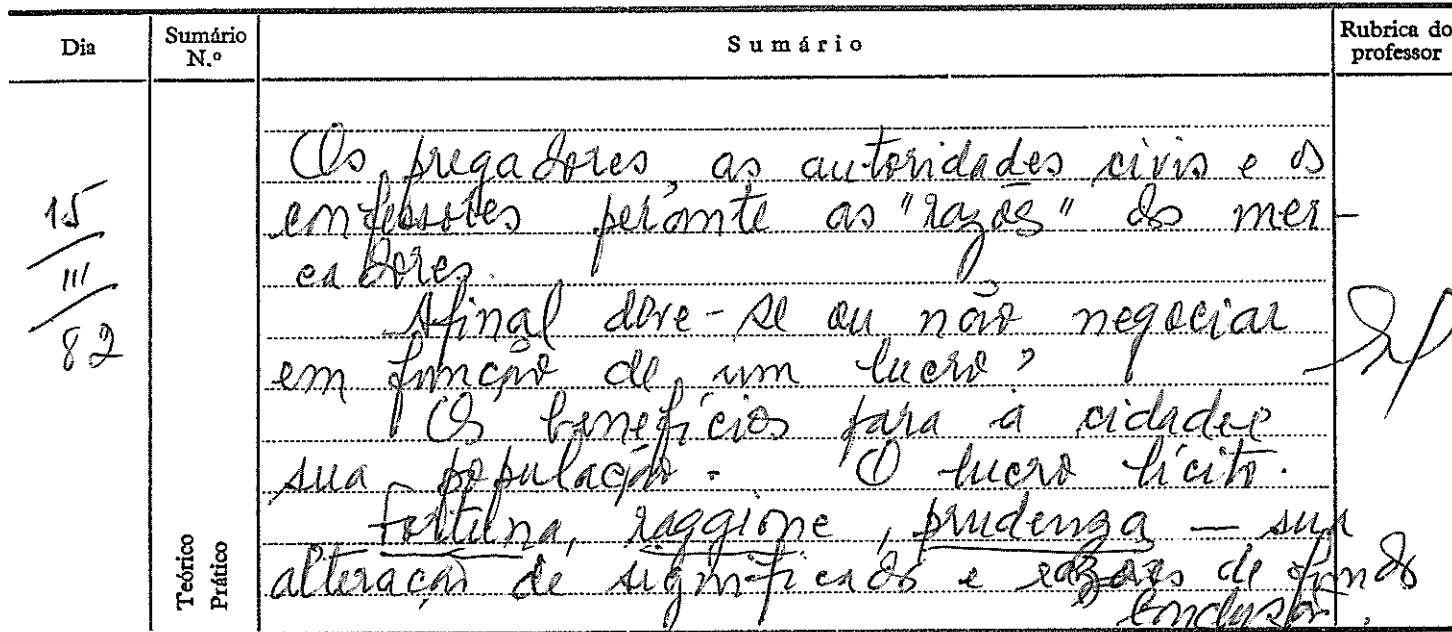 Dia
Sumário
N.º
Sumário
Rubrica do
professor
15
III
82
Os pregadores, as autoridades civis e os
confessores perante as "razões" dos mer-
cadores.
Afinal deve-se ou não negociar
em função de um lucro?
Os benefícios para a cidade e
sua população. O lucro lícito.
Fortuna, raggione, prudenza — sua
alteração de significados e razões de fundo
Conclusão.
Teórico
Prático